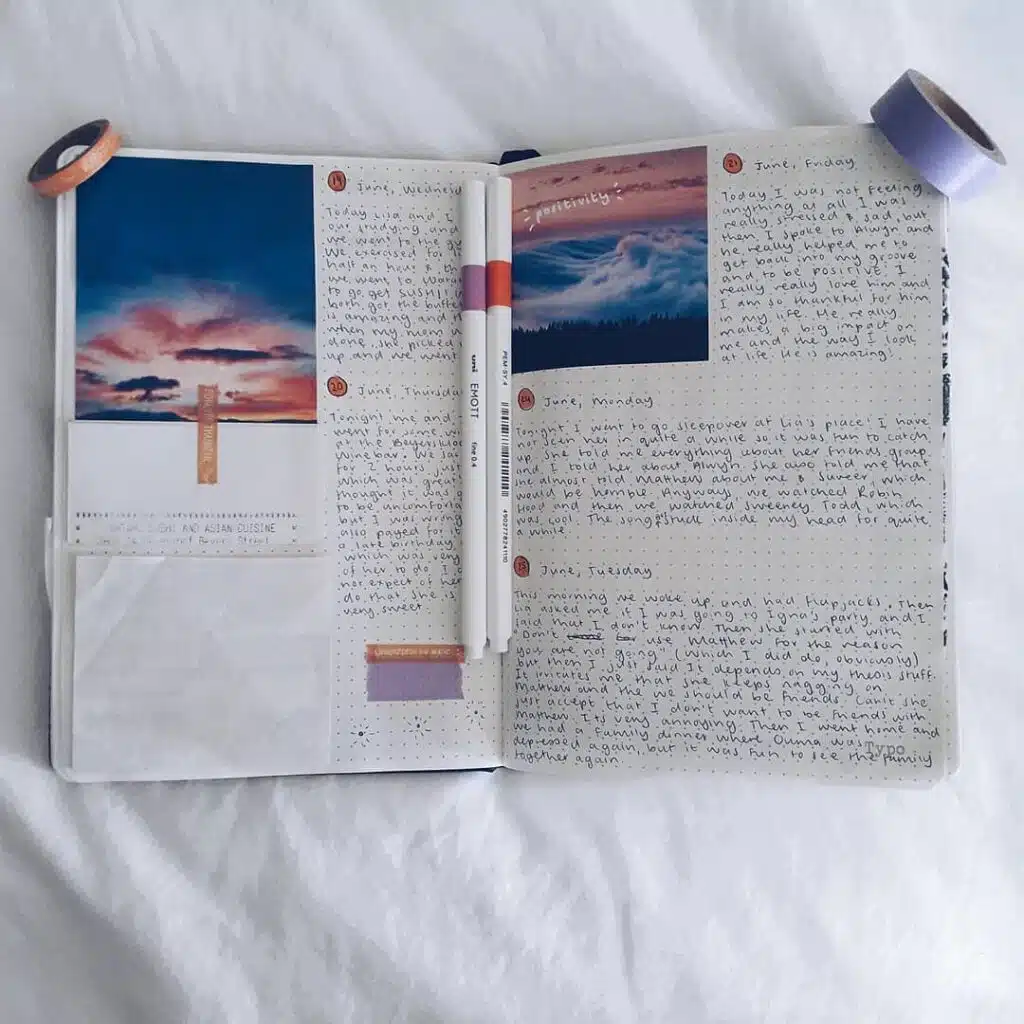 19
June, Wednesd
Today Lia and I
our studying and
we went to the gy
We exercised for
half an hour & th
we went to
to go get sushi!
both got the buffe
amazing and
when my mum
done she picked
up and we went
20
June, Thursda
Tonight me and
went for some w
at the
Winebar. We
for 2 hours jus
which was grea
thought it was g
to be uncomforta
but I was wrong
also payed for it
a late birthday
which was very
of her to do. I d
not expect of her
do that. She is
very sweet
AND ASIAN CUISINE
Street
uni EMOTT fine 0.4
PEM-SY.4
4902778241110
positivity
21
June, Friday
Today I was not feeling
anything at all. I was
really stressed & sad, but
then I spoke to Alwyn and
he really helped me to
get back into my groove
and to be positive. I
really really love him and
I am so thankful for him
in my life. He really
makes a big impact on
me and the way I look
at life. He is amazing!
24
June, Monday
Tonight I went to go sleepover at Lia's place! I have
not seen her in quite a while so it was fun to catch
up. She told me everything about her friends group
and I told her about Alwyn. She also told me that
she almost told Mathew about me & Suveer, which
would be horrible. Anyways, we watched Robin
Hood and then we watched Sweeney Todd, which
was cool. The songs stuck inside my head for quite
a while.
25
June, Tuesday
This morning we woke up and had flapjacks. Then
Lia asked me if I was going to Igna's party and I
said that I don't know. Then she started with
"Don't use Matthew for the reason
you are not going" (which I did do, obviously)
but then I just said it depends on my thesis stuff.
It irritates me that she keeps nagging on
Matthew and the we should be friends. Can't she
just accept that I don't want to be friends with
Mathew. Its very annoying. Then I went home and
we had a family dinner where Ouma was
depressed again, but it was fun to see the family
together again.
Typo